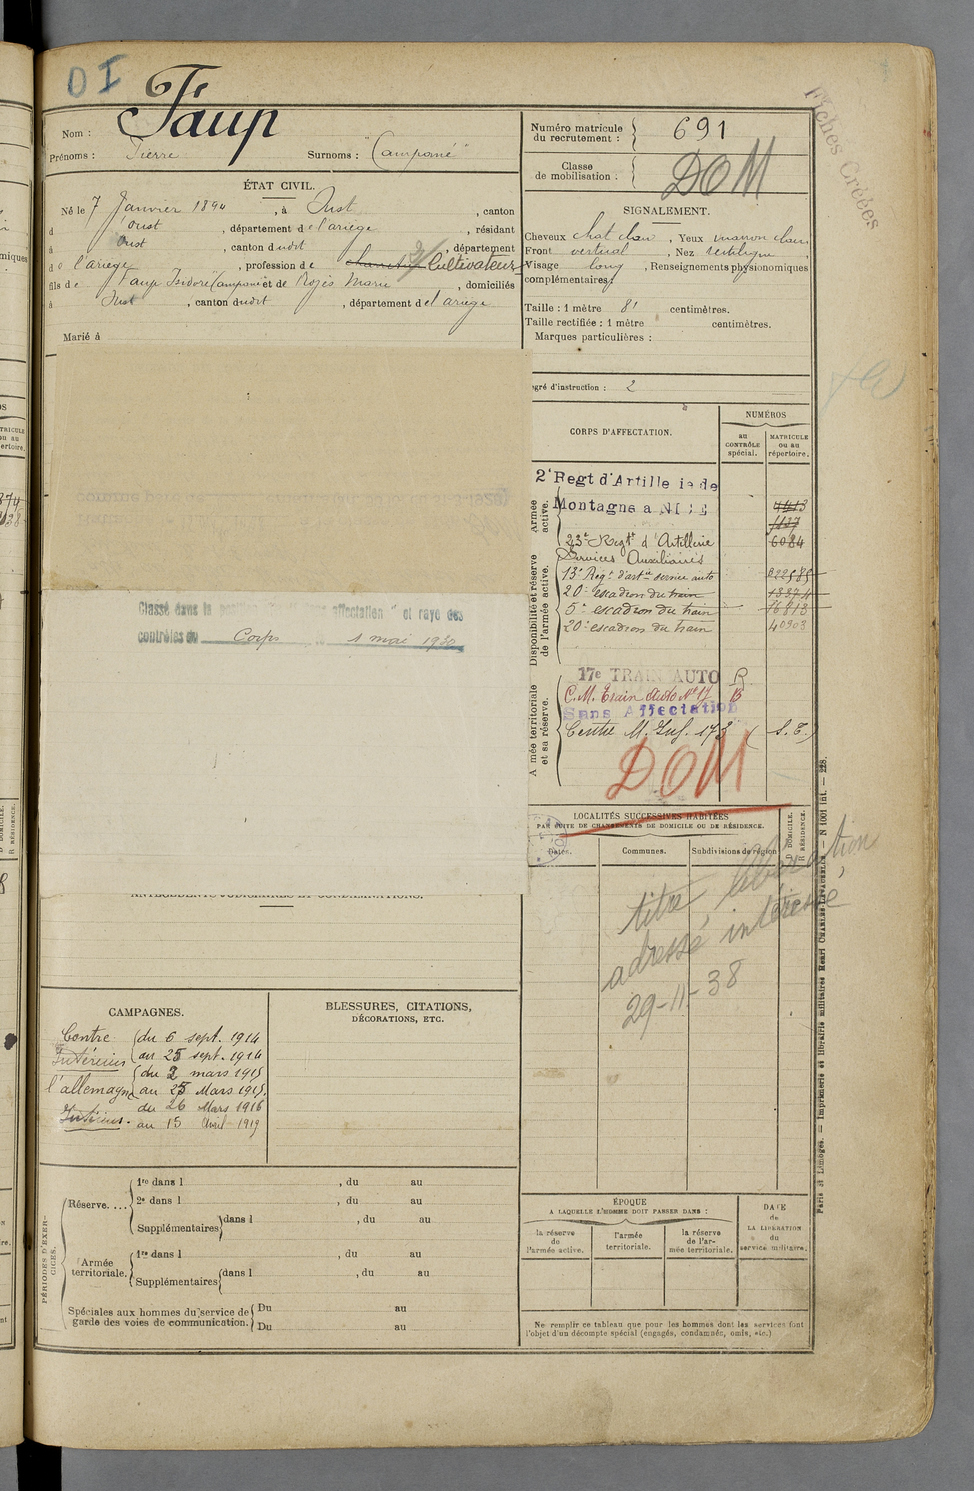 DI
Faup
Nom :
Prénoms : Pierre Surnoms : "Campané"
ÉTAT CIVIL.
Né le 7 Janvier 1894, à Oust, canton
d'Oust, département de l'ariège, résidant
à Oust, canton dudit, département
de l'ariège, profession de Cultivateur
fils de Faup Isidore Campané et de Rogès Marie, domiciliés
à Oust, canton dudit, département de l'ariège
Marié à
Numéro matricule
du recrutement : 691
Classe
de mobilisation :
DOM
Fiches Créées
SIGNALEMENT.
Cheveux chat clair, Yeux marron clair
Front vertical, Nez rectiligne,
Visage long, Renseignements physionomiques
complémentaires :
Taille : 1 mètre 81 centimètres.
Taille rectifiée : 1 mètre centimètres.
Marques particulières :
egré d'instruction : 2
CORPS D'AFFECTATION.
NUMÉROS
au
CONTRÔLE
spécial.
MATRICULE
ou au
répertoire.
Armée
active.
2e Regt d'Artillerie de
Montagne a NICE
23e Régt d'Artillerie 6084
Services Auxiliaires
Disponibilité et réserve
de l'armée active.
13e Reg. d'artie service auto
20e escadron du train
5e escadron du train 16813
20e escadron du train 40903
Armée territoriale
et sa réserve.
17e TRAIN AUTO R
C.M. Train Auto No 17 B
Sans Affectation
Centre M. Inf. 173 (S.T.)
DOM
Classé dans la position "Sans affectation" et rayé des
contrôles du Corps le 1 mai 1930
LOCALITÉS SUCCESSIVES HABITÉES
PAR SUITE DE CHANGEMENTS DE DOMICILE OU DE RÉSIDENCE.
Dates.
Communes.
Subdivisions de région
D DOMICILE.
R RÉSIDENCE.
titre libération
adressé intéressé
29-11-38
ANTÉCÉDENTS JUDICIAIRES ET CONDAMNATIONS.
CAMPAGNES.
Contre (du 6 sept. 1914
Intérieur (au 25 sept. 1914
(du 2 mars 1915
l'allemagne (au 25 Mars 1915.
Intérieur. du 26 Mars 1916
au 15 Avril 1919
BLESSURES, CITATIONS,
DÉCORATIONS, ETC.
PÉRIODES D'EXER-
CICES.
Réserve....
1re dans l , du au
2e dans l , du au
Supplémentaires dans l , du au
Armée
territoriale.
1re dans l , du au
Supplémentaires dans l , du au
Spéciales aux hommes du service de
garde des voies de communication.
Du au
Du au
ÉPOQUE
A LAQUELLE L'HOMME DOIT PASSER DANS :
la réserve
de
l'armée active.
l'armée
territoriale.
la réserve
de l'ar-
mée territoriale.
DATE
de
LA LIBÉRATION
du
service militaire.
Ne remplir ce tableau que pour les hommes dont les services font
l'objet d'un décompte spécial (engagés, condamnés, omis, etc.)
Paris et Limoges. — Imprimerie et librairie militaires Henri CHARLES-LAVAUZELLE. — N 1001 Int. — 228.